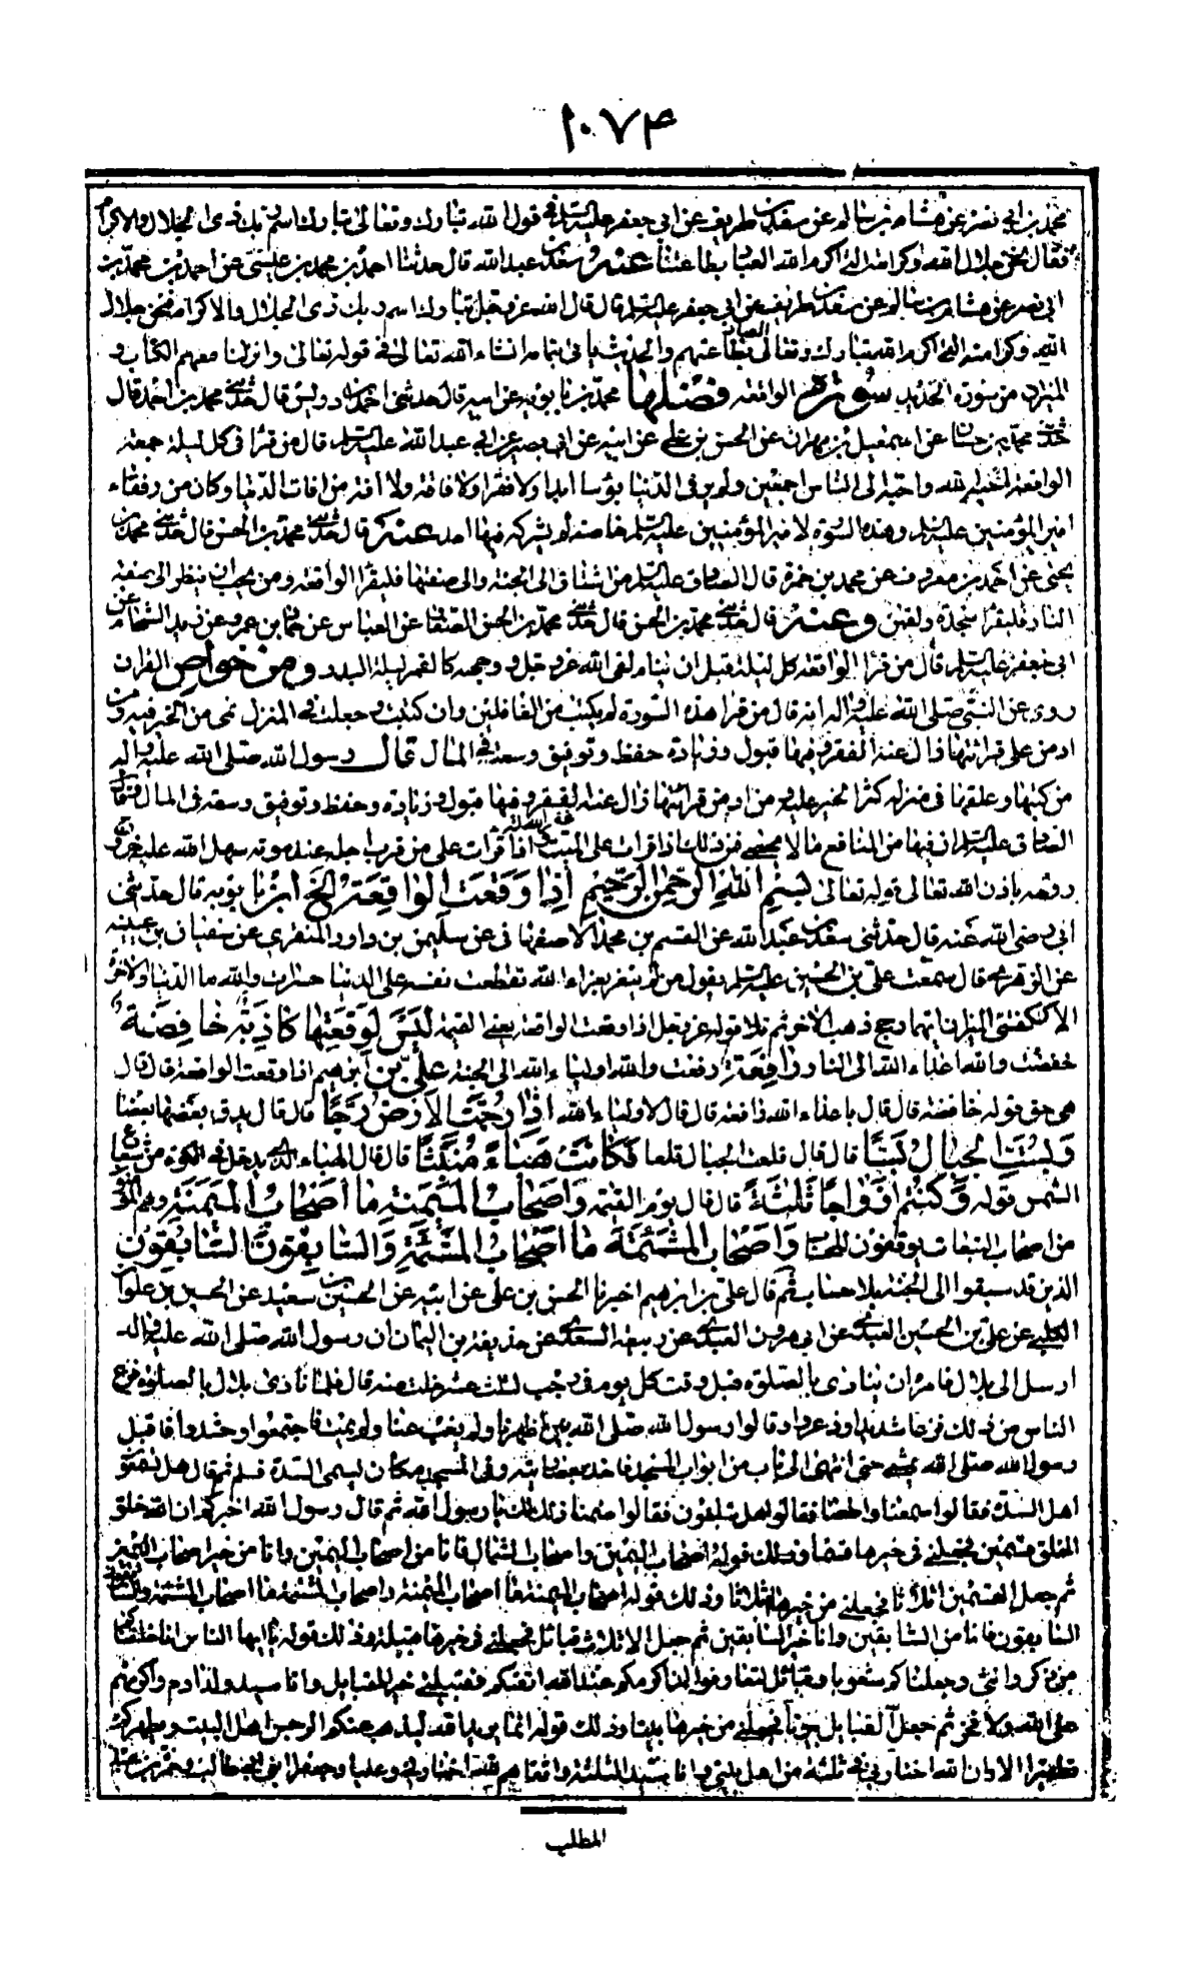 ١٠٧٤
محمد بن ابي نصر عن هشام بن سالم عن سعد بن طريف عن ابي جعفر عليه السلم في قول الله تبارك وتعالى تبارك اسم ربك ذي الجلال والاكرام
فقال نحن جلال الله وكرامته التي اكرم الله العباد بطاعتنا عنه سعد بن عبد الله قال حدثنا احمد بن محمد بن عيسى عن احمد بن محمد بن
ابي نصر عن هشام بن سالم عن سعد بن طريف عن ابي جعفر عليه السلم قال قال الله عز وجل تبارك اسم ربك ذي الجلال والاكرام فنحن جلال
الله وكرامته التي اكرم الله تبارك وتعالى العباد بطاعتهم والحديث ياتي بتمامه انشاء الله تعالى في قوله تعالى وانزلنا معهم الكتاب و
الميزان من سورة الحديد سورة الواقعة فضلها محمد بن بابويه عن ابيه قال حدثني احمد بن ادريس قال حدثني محمد بن احمد قال
حدثني محمد بن حسان عن اسمعيل بن مهران عن الحسن بن علي عن ابيه عن ابي بصير عن ابي عبد الله عليه السلم قال من قرا في كل ليلة جمعة
الواقعة احبه الله واحبه الى الناس اجمعين ولم ير في الدنيا بؤسا ابدا ولا فقرا ولا فاقة ولا افة من افات الدنيا وكان من رفقاء
امير المؤمنين عليه السلم وهذه السورة لامير المؤمنين عليه السلم خاصة لم يشركه فيها احد عنه قال حدثني محمد بن الحسن قال حدثني محمد بن
يحيى عن احمد بن معروف عن محمد بن حمزة قال قال الصادق عليه السلم من اشتاق الى الجنة والى صفتها فليقرا الواقعة ومن يحب ان ينظر الى صفة
النار فليقرا سجدة ولقمن وعنه قال حدثني محمد بن الحسن قال حدثني محمد بن الحسن الصفار عن العباس عن حماد بن عمرو عن زيد الشحام عن
ابي جعفر عليه السلم قال من قرا الواقعة كل ليلة قبل ان ينام لقى الله عز وجل ووجهه كالقمر ليلة البدر ومن خواص القران
روى عن النبي صلى الله عليه واله انه قال من قرا هذه السورة لم يكتب من الغافلين وان كتبت وجعلت في المنزل نمى من الخير فيه ومن
ادمن على قرائتها زال عنه الفقر وفيها قبول وزيادة حفظ وتوفيق وسعة في المال قال رسول الله صلى الله عليه واله
من كتبها وعلقها في منزله كثر الخير عليه ومن ادمن قرائتها زال عنه الفقر وفيها قبول وزيادة وحفظ وتوفيق وسعة في المال وقال
الصادق عليه السلم ان فيها من المنافع ما لا يحصى فمن ذلك اذا قرات على الميت غفر الله له واذا قرات على من قرب اجله عند موته سهل الله عليه خروج
روحه باذن الله تعالى قوله تعالى بسم الله الرحمن الرحيم اذا وقعت الواقعة الخ ابن بابويه قال حدثني
ابي رضي الله عنه قال حدثني سعد بن عبد الله عن القسم بن محمد الاصفهاني عن سليمن بن داود المنقري عن سفيان بن عيينه
عن الزهري قال سمعت علي بن الحسين عليه السلم يقول من لم يتعز بعزاء الله تقطعت نفسه على الدنيا حسرات والله ما الدنيا والاخرة
الا ككفتي الميزان ايهما رجح ذهب بالاخر ثم تلا قوله عز وجل اذا وقعت الواقعة يعني القيمة ليس لوقعتها كاذبة خافضة
خفضت والله اعداء الله الى النار رافعة رفعت والله اولياء الله الى الجنة علي بن ابرهيم اذا وقعت الواقعة قال قال
هي حق قوله خافضة قال قال باعداء الله رافعة قال قال لاولياء الله اذا رجت الارض رجا قال قال يدق بعضها بعضا
وبست الجبال بسا قال قال قلعت الجبال قلعا فكانت هباء منبثا قال قال الهباء الذي يدخل في الكوة من شعاع
الشمس قوله وكنتم ازواجا ثلثة قال قال يوم القيمة واصحاب الميمنة ما اصحاب الميمنة وهم المؤمنون
من اصحاب التبعات يوقفون للحساب واصحاب المشئمة ما اصحاب المشئمة والسابقون السابقون
الذين قد سبقوا الى الجنة بلا حساب ثم قال علي بن ابرهيم اخبرنا الحسن بن علي عن ابيه عن الحسين بن سعيد عن الحسين بن علوان
الكلبي عن علي بن الحسين العبدي عن ابي هرون العبدي عن ربيعة السعدي عن حذيفة بن اليمان ان رسول الله صلى الله عليه واله
ارسل الى بلال فامره ان ينادي بالصلوة قبل وقت كل يوم في رجب لثلث عشر خلت منه قال فلما نادى بلال بالصلوة فزع
الناس من ذلك فزعا شديدا وذعروا وقالوا رسول الله صلى الله بين اظهرنا ولم يغب عنا ولم يمت فاجتمعوا وحشدوا فاقبل
رسول الله صلى الله يمشي حتى انتهى الى باب من ابواب المسجد فاخذ بعضادتيه وفي المسجد مكان يسمى السدة فسلم ثم قال هل تسمعون
اهل السدة فقالوا سمعنا واطعنا فقال هل تبلغون فقالوا ضمنا ذلك لك يا رسول الله ثم قال رسول الله اخبركم ان الله خلق
الخلق قسمين فجعلني في خيرهما قسما وذلك قوله اصحاب اليمين واصحاب الشمال فانا من اصحاب اليمين وانا من خير اصحاب اليمين
ثم جعل القسمين اثلاثا فجعلني من خيرها اثلاثا وذلك قوله اصحاب الميمنة ما اصحاب الميمنة واصحاب المشئمة ما اصحاب المشئمة والسابقون
السابقون فانا من السابقين وانا خير السابقين ثم جعل الاثلاث قبائل فجعلني في خيرها قبيلة وذلك قوله يا ايها الناس انا خلقناكم
من ذكر وانثى وجعلناكم شعوبا وقبائل لتعارفوا ان اكرمكم عند الله اتقيكم فقبيلتي خير القبايل وانا سيد ولد ادم واكرمكم
على الله ولا فخر ثم جعل القبايل بيوتا فجعلني من خيرها بيتا وذلك قوله انما يريد الله ليذهب عنكم الرجس اهل البيت ويطهركم
تطهيرا الا وان الله اختارني في ثلثة من اهل بيتي وانا سيد الثلثة واتقاهم لله اختارني وعليا وجعفرا ابني ابي طالب وحمزة بن عبد
المطلب